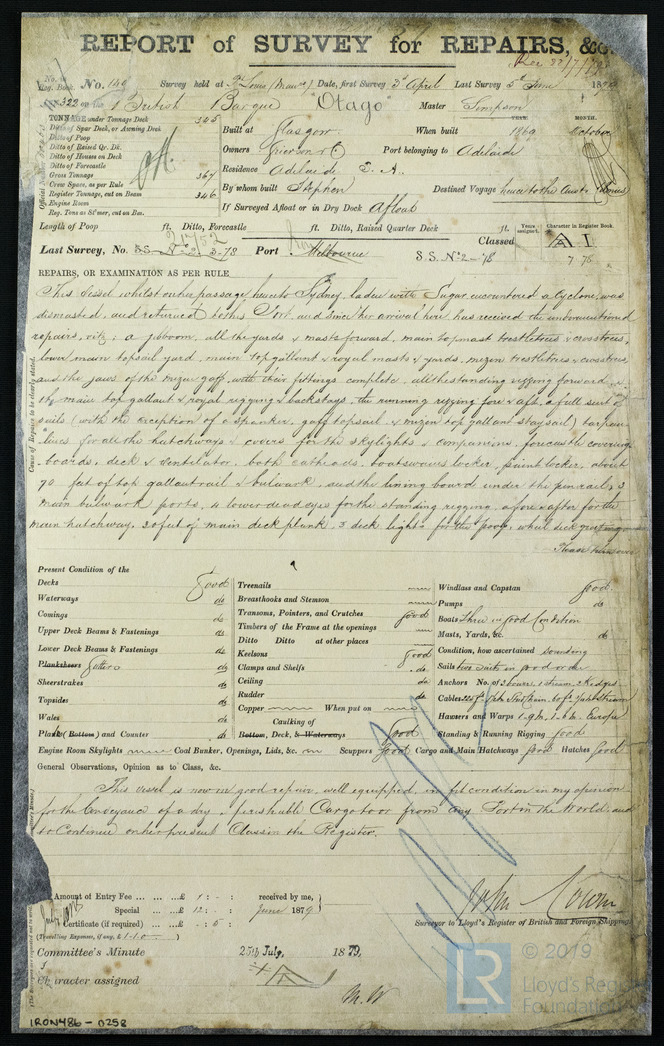 REPORT of SURVEY for REPAIRS, &c.
No. in Reg. Book. No. 140 Survey held at Date, first Survey 3d April Last Survey 5th June 18
322 on the British Barque "Otago" Master Simpson
TONNAGE under Tonnage Deck 345
Ditto of Spar Deck, or Awning Deck
Ditto of Poop
Ditto of Raised Qr. Dk.
Ditto of Houses on Deck
Ditto of Forecastle
Gross Tonnage 367
Crew Space, as per Rule
Register Tonnage, cut on Beam 346
Engine Room
Reg. Tons as St'mer, cut on Bm.
YEAR. MONTH.
Built at Glasgow When built 1869 October
Owners Grierson & Co Port belonging to Adelaide
Residence Adelaide S. A.
By whom built Stephen Destined Voyage
If Surveyed Afloat or in Dry Dock Afloat
Length of Poop ft. Ditto, Forecastle ft. Ditto, Raised Quarter Deck ft.
Last Survey, No. 3-78 Port Melbourne S.S. No 2-78 Classed
Years assigned. Character in Register Book.
A 1
7.78
REPAIRS, OR EXAMINATION AS PER RULE
This Vessel whilst on her passage hence to Sydney, laden with Sugar encountered a Cyclone, was
dismasted, and returned to this Port, and since her arrival here has received the undermentioned
repairs, viz; a jibboom, all the yards & masts forward, main topmast trestletrees & crosstrees,
lower main topsail yard, main top gallant & royal masts & yards, mizen trestletrees & crosstrees,
and the jaws of the mizen gaff, with their fittings complete, all the standing rigging forward &
the main top gallant & royal rigging & backstays, the running rigging fore & aft, a full suit of
sails (with the exception of a spanker, gaff topsail & mizen top gallant staysail) tarpau-
lins for all the hatchways & covers for the skylights & companion, forecastle covering
boards, deck & ventilator, both catheads, boatswains locker, paint locker, about
70 feet of top gallant rail & bulwark, and the lining board under the pinrail, 3
main bulwark ports, 4 lower deadeyes for the standing rigging, a fore & after for the
main hatchway, 20 feet of main deck plank, 3 deck lights for the poop, wheel
Please turn over
Cause of Repairs to be clearly stated.
Present Condition of the
Decks good
Waterways do
Comings do
Upper Deck Beams & Fastenings do
Lower Deck Beams & Fastenings do
Planksheers Gutters do
Sheerstrakes do
Topsides do
Wales do
Plank (Bottom) and Counter do
Treenails
Breasthooks and Stemson
Transoms, Pointers, and Crutches good
Timbers of the Frame at the openings
Ditto Ditto at other places
Keelsons good
Clamps and Shelfs do
Ceiling do
Rudder do
Copper When put on
Caulking of
Bottom, Deck, & Waterways good
Windlass and Capstan good
Pumps do
Boats Three in good Condition
Masts, Yards, &c. do
Condition, how ascertained sounding
Sails two suits in good order
Anchors No. of 3 bower, 1 stream, 2 kedges
Cables
Hawsers and Warps
Standing & Running Rigging good
Engine Room Skylights Coal Bunker, Openings, Lids, &c. Scuppers good Cargo and Main Hatchways good Hatches good
General Observations, Opinion as to Class, &c.
This vessel is now in good repair, well equipped, in fit condition in my opinion
for the Conveyance of a dry & perishable Cargo to or from any Port in the World, and
to Continue on her present Class in the Register.
Amount of Entry Fee £ 1: - : received by me,
Special £ 12: - : June 1879
Certificate (if required) £ - : 5 :
(Travelling Expenses, if any, £ 1-1-0)
John
Surveyor to Lloyd's Register of British and Foreign Shipping.
Committee's Minute 25th July, 1879.
Character assigned
A
M. W
LR
© 2019
Lloyd's Register
Foundation
IRON486-0258